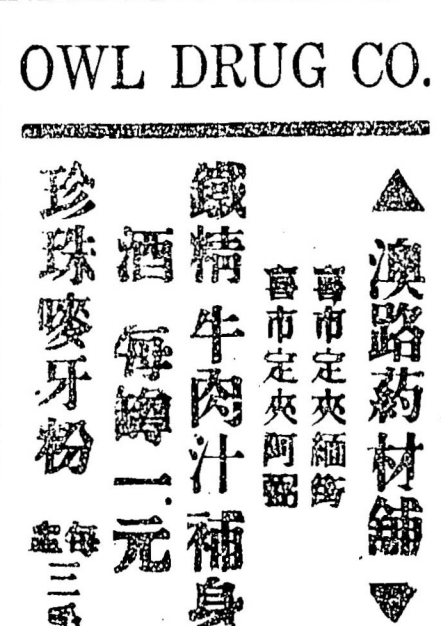 OWL DRUG CO.
澳路葯材舖
喜市定夾緬街
喜市定夾阿
鐵精牛肉汁補身
酒每罇一元
珍珠嘜牙粉
每三